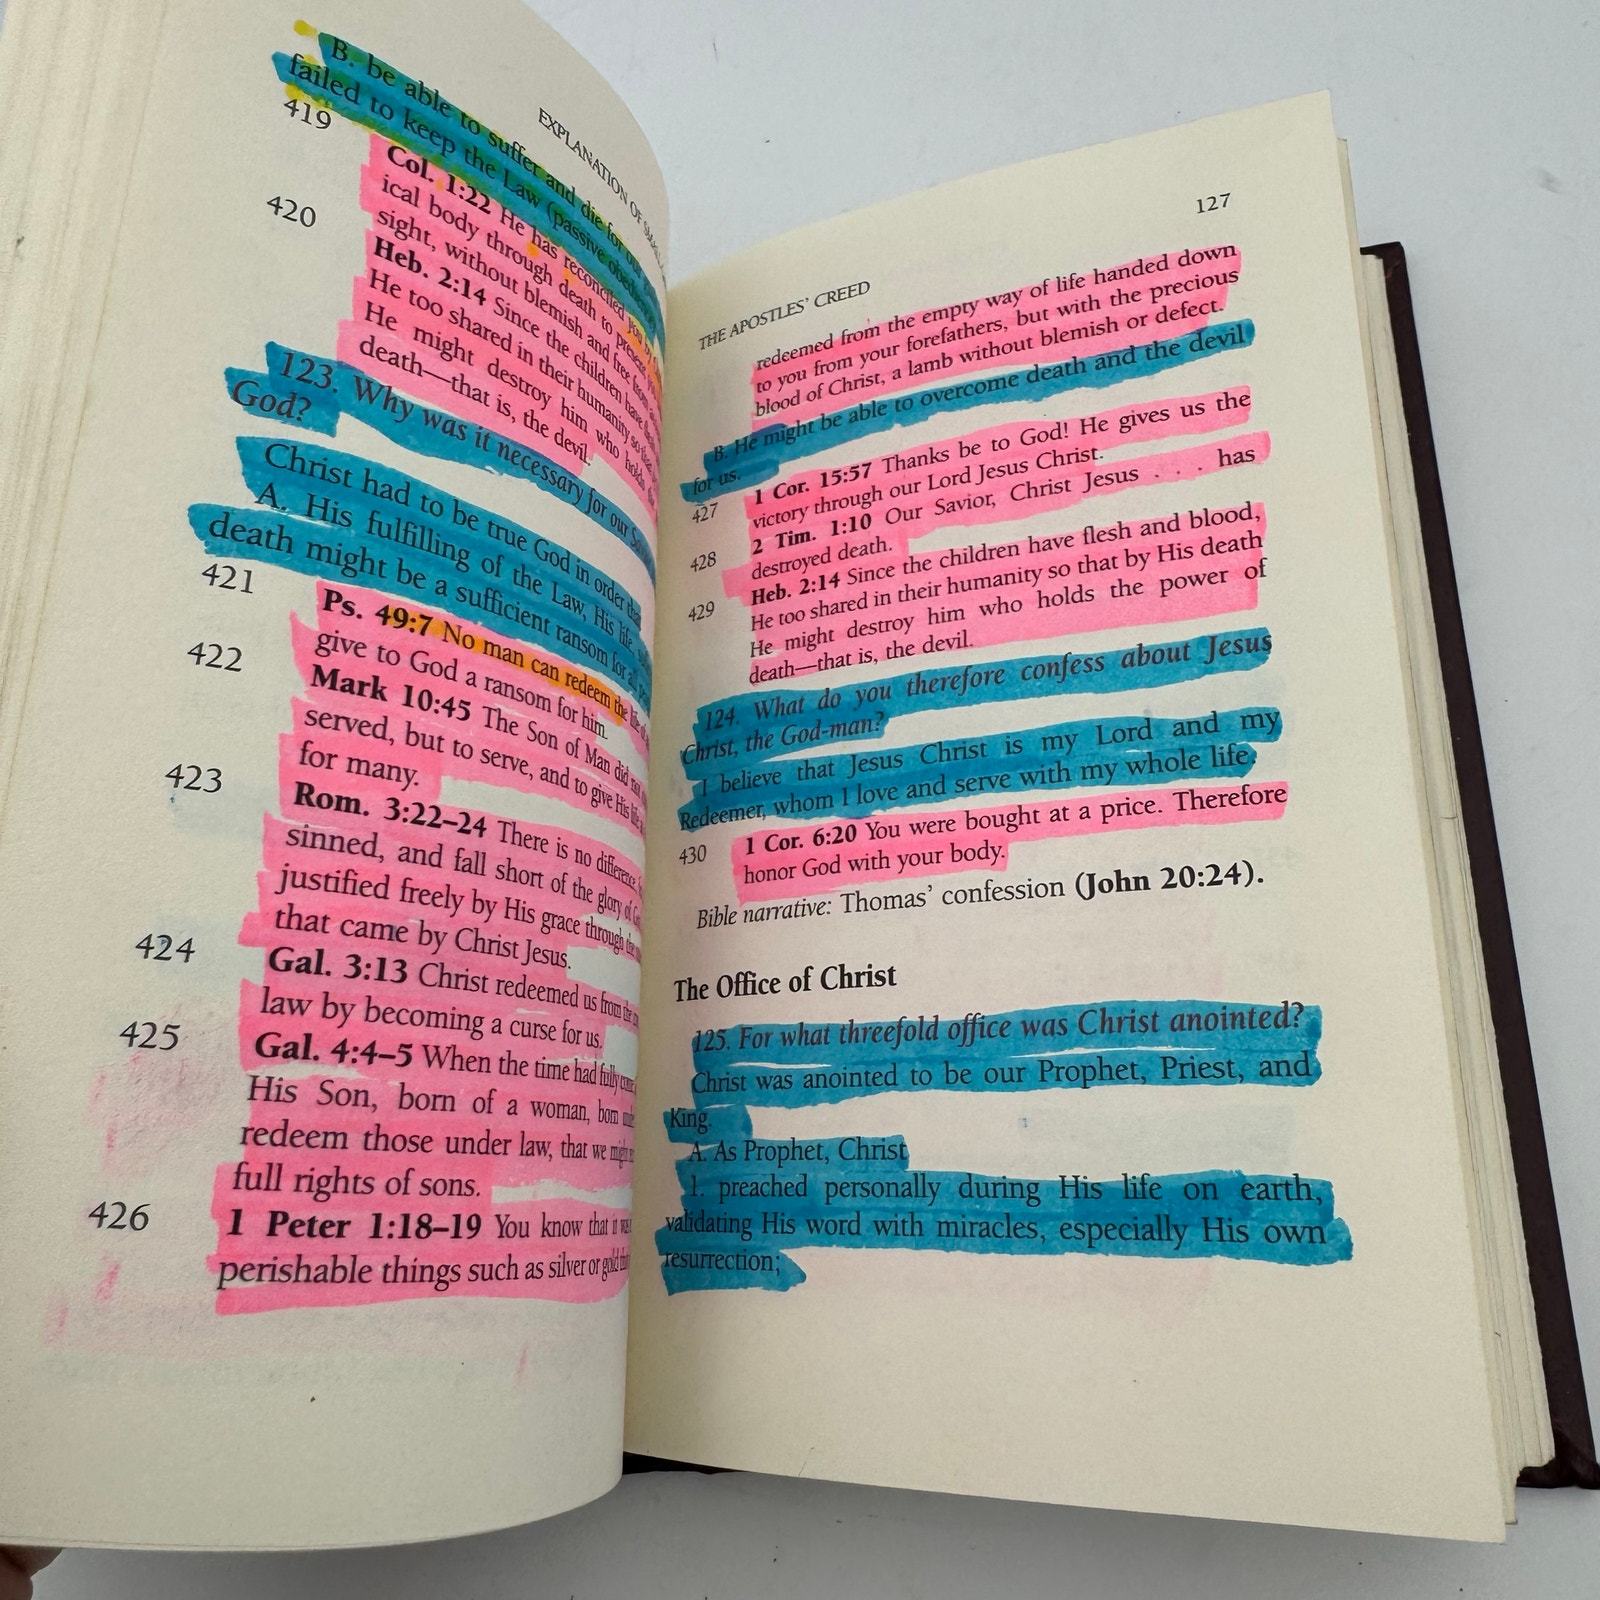 EXPLANATION OF
B. be able to suffer and die for our
failed to keep the Law (passive
419
Col. 1:22 He has reconciled you by
ical body through death to present
sight, without blemish and free from
420
Heb. 2:14 Since the children have
He too shared in their humanity so that
He might destroy him who holds the
death—that is, the devil.
123. Why was it necessary for our
God?
Christ had to be true God in order that
A. His fulfilling of the Law, His life,
death might be a sufficient ransom for all
421
Ps. 49:7 No man can redeem the life of
give to God a ransom for him.
422
Mark 10:45 The Son of Man did not
served, but to serve, and to give His life
for many.
423
Rom. 3:22–24 There is no difference,
sinned, and fall short of the glory of
justified freely by His grace through the
that came by Christ Jesus.
424
Gal. 3:13 Christ redeemed us from the
law by becoming a curse for us.
425
Gal. 4:4–5 When the time had fully
His Son, born of a woman, born
redeem those under law, that we might
full rights of sons.
426
1 Peter 1:18–19 You know that it
perishable things such as silver or gold
THE APOSTLES' CREED
127
redeemed from the empty way of life handed down
to you from your forefathers, but with the precious
blood of Christ, a lamb without blemish or defect.
B. He might be able to overcome death and the devil
for us.
427
1 Cor. 15:57 Thanks be to God! He gives us the
victory through our Lord Jesus Christ.
428
2 Tim. 1:10 Our Savior, Christ Jesus . . . has
destroyed death.
429
Heb. 2:14 Since the children have flesh and blood,
He too shared in their humanity so that by His death
He might destroy him who holds the power of
death—that is, the devil.
124. What do you therefore confess about Jesus
Christ, the God-man?
I believe that Jesus Christ is my Lord and my
Redeemer, whom I love and serve with my whole life.
430
1 Cor. 6:20 You were bought at a price. Therefore
honor God with your body.
Bible narrative: Thomas' confession (John 20:24).
The Office of Christ
125. For what threefold office was Christ anointed?
Christ was anointed to be our Prophet, Priest, and
King.
A. As Prophet, Christ
1. preached personally during His life on earth,
validating His word with miracles, especially His own
resurrection;